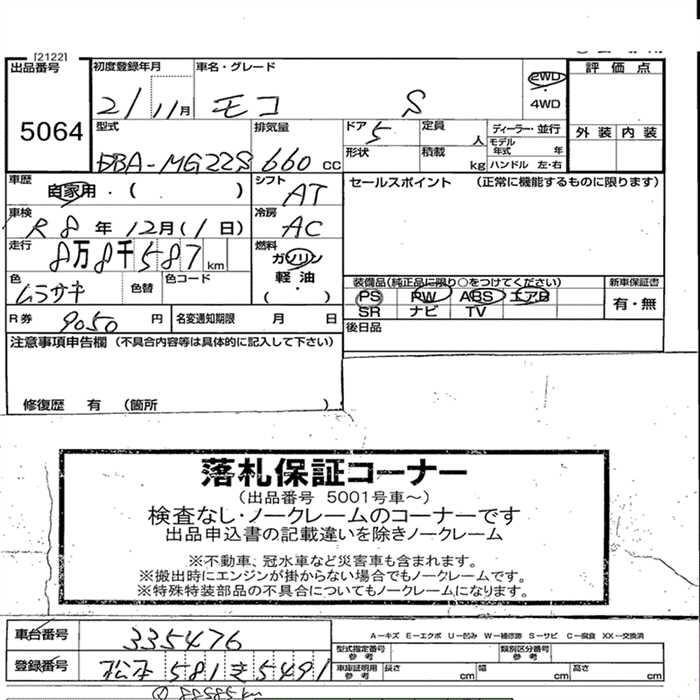 [2122]
出品番号 初度登録年月 車名・グレード 2WD 評価点
5064 21/11月 モコ S ・4WD
型式 排気量 ドア 5 定員 人 ディーラー・並行 外装 内装
DBA-MG22S 660cc 形状 積載 kg モデル年式 年
ハンドル 左・右
車歴 自家用・( ) シフト AT セールスポイント (正常に機能するものに限ります)
車検 R8年12月(1日) 冷房 AC
走行 8万8千587km 燃料 ガソリン
軽油
( ・ )
色 ムラサキ 色替 色コード
装備品(純正品に限り○をつけてください) 新車保証書
PS PW ABS エアB 有・無
SR ナビ TV
R券 9050円 名変通知期限 月 日 後日品
注意事項申告欄 (不具合内容等は具体的に記入して下さい)
修復歴 有 (箇所 )
落札保証コーナー
(出品番号 5001号車~)
検査なし・ノークレームのコーナーです
出品申込書の記載違いを除きノークレーム
※不動車、冠水車など災害車も含まれます。
※搬出時にエンジンが掛からない場合でもノークレームです。
※特殊特装部品の不具合についてもノークレームになります。
車台番号 335476 A─キズ E─エクボ U─凹み W─補修跡 S─サビ C─腐食 XX─交換済
登録番号 松本 581 き 5491 型式指定番号 参考 類別区分番号 参考
車庫証明用 参考 長さ cm 幅 cm 高さ cm